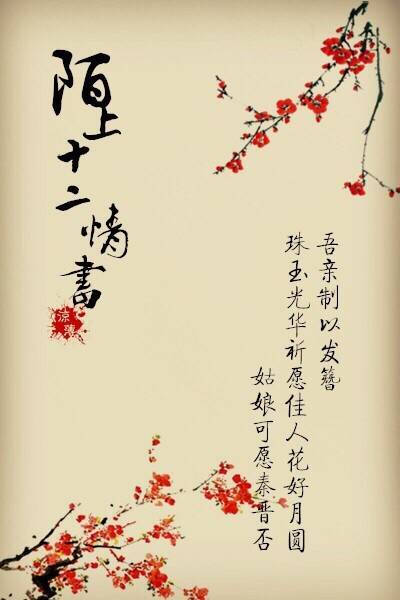 陌上十二情書
涼薄
吾亲制以发簪
珠玉光华祈愿佳人花好月圆
姑娘可愿秦晋否